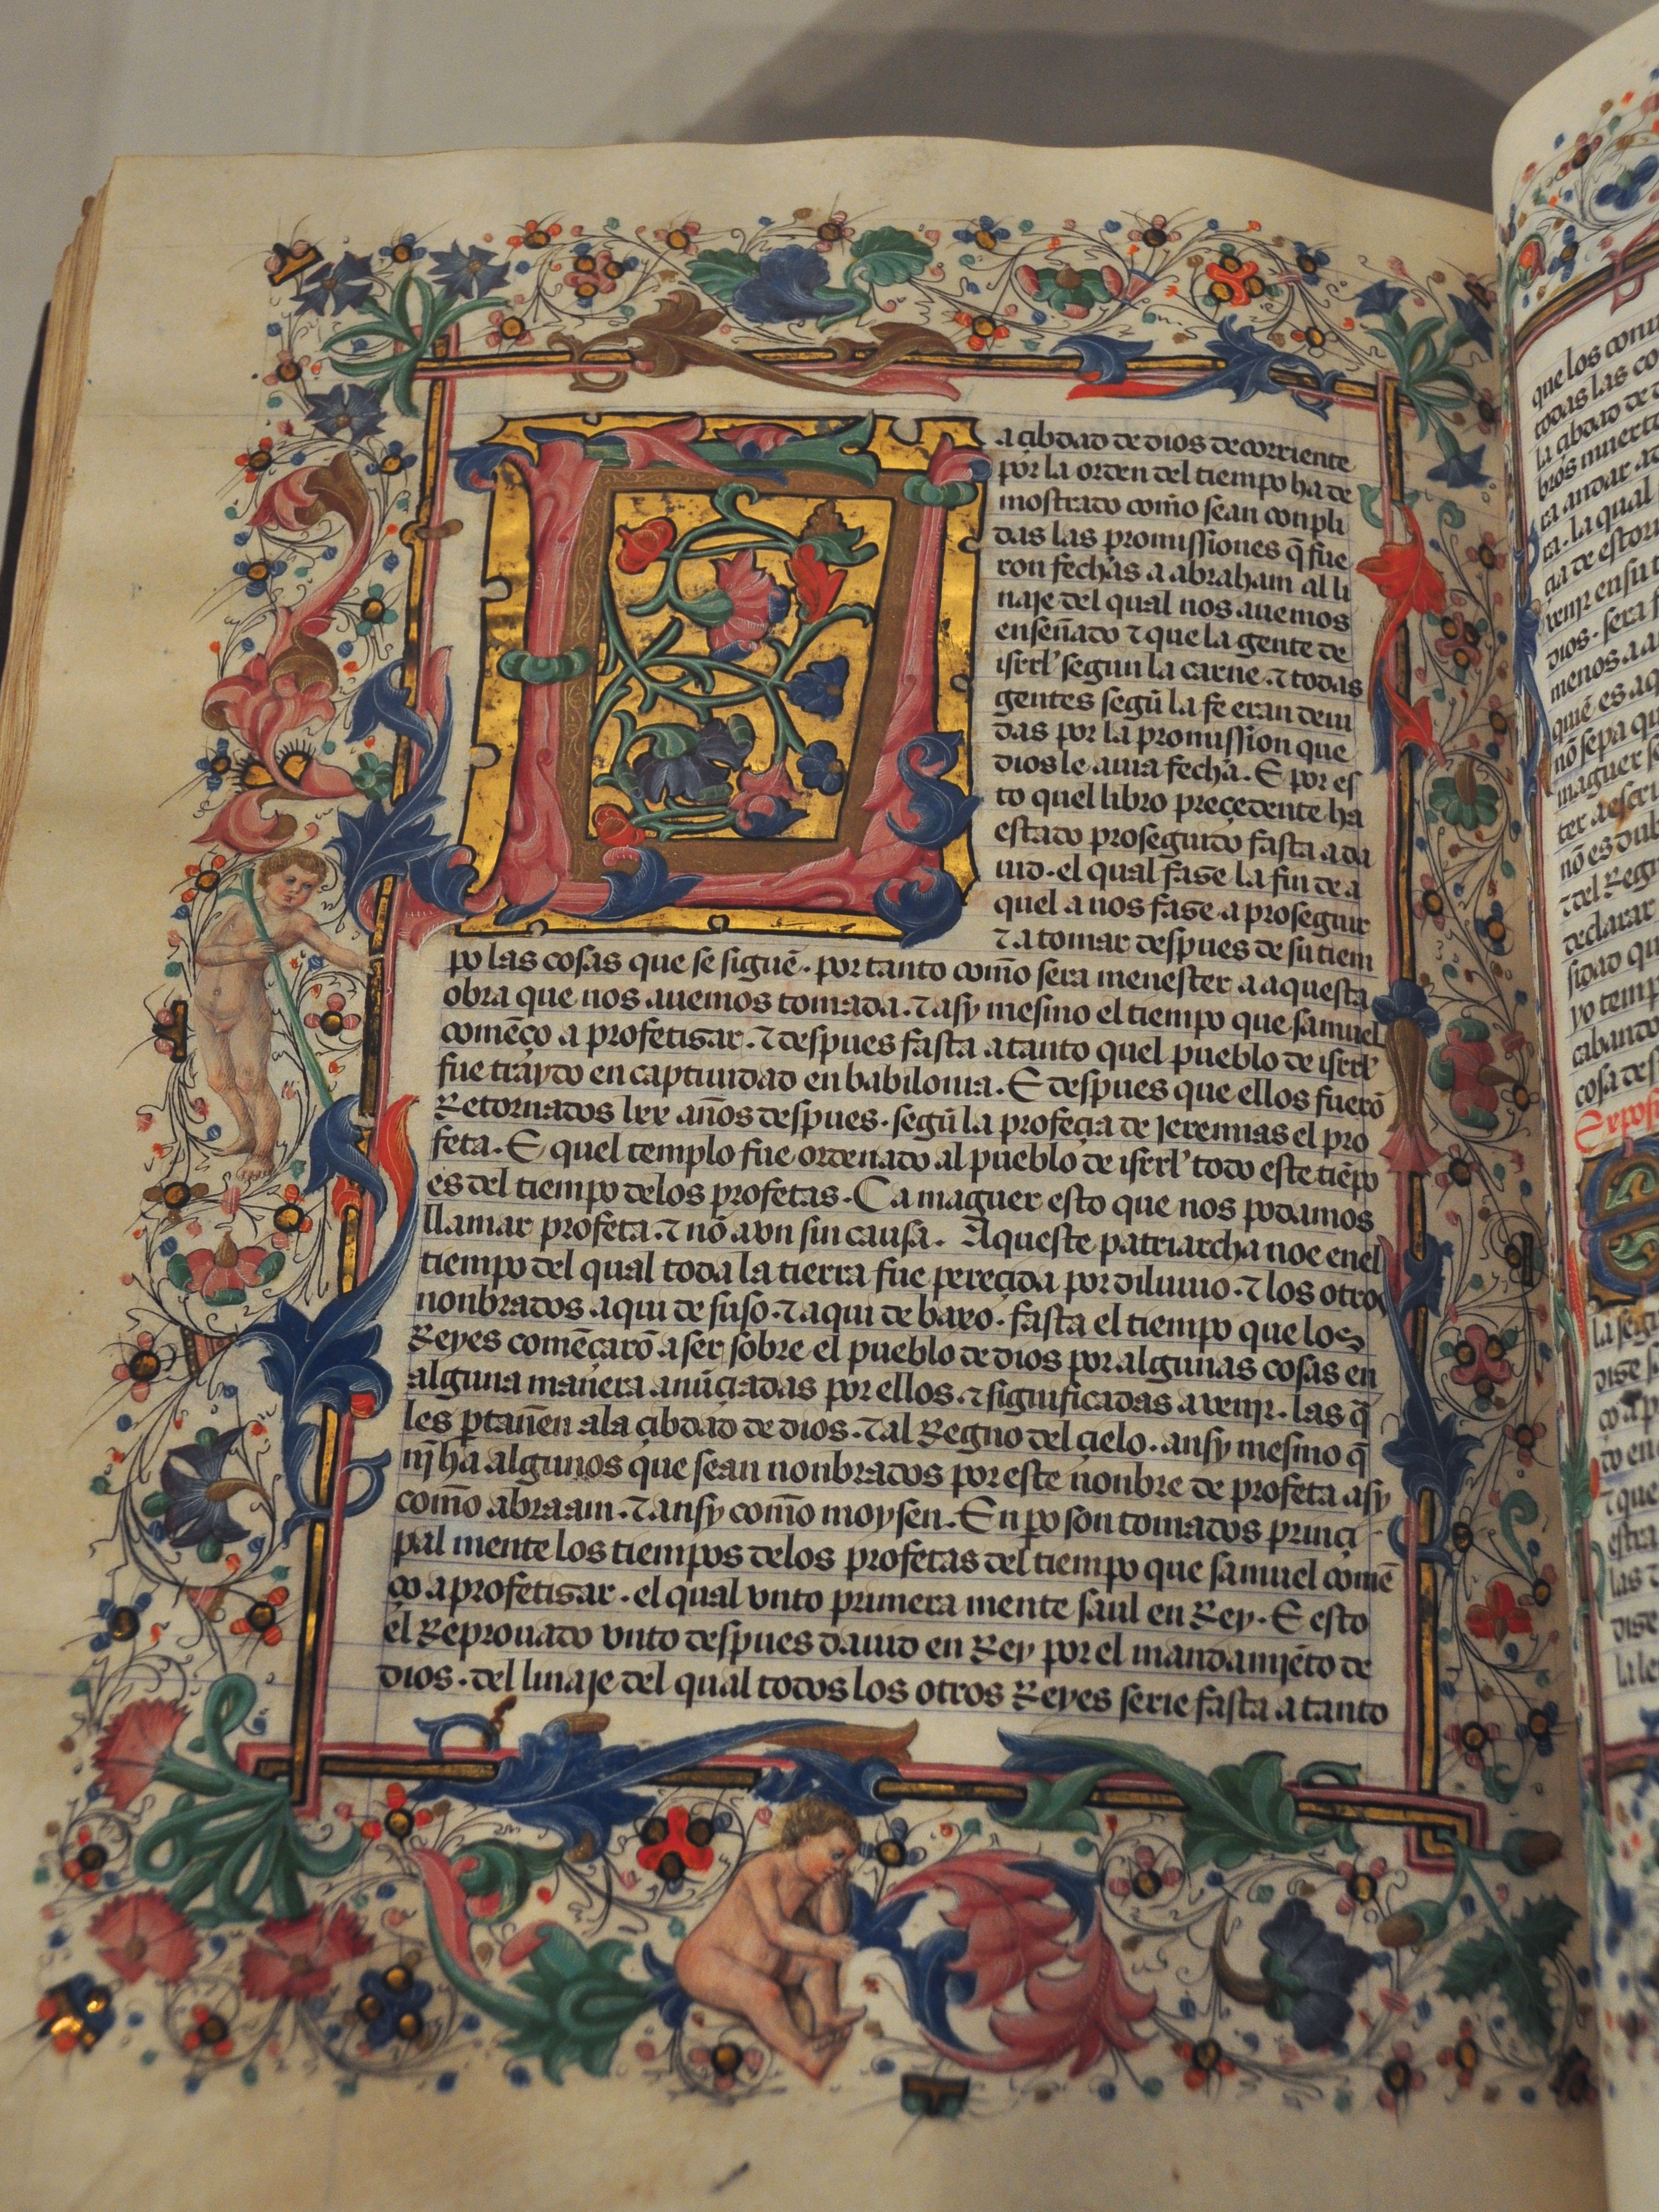 La çibdad de dios decorriente
por la orden del tiempo ha de
mostrado com̃o sean conpli
das las promissiones q̃ fue
ron fechas a abraham al li
naje del qual nos auemos
enseñado ⁊ que la gente de
isrrl' segun la carne. ⁊ todas
gentes segũ la fe eran deui
das por la promission que
dios le auia fecha. E por es
to quel libro preçedente ha
estado proseguido fasta a da
uid. el qual fase la fin de a
quel a nos fase a proseguir
⁊ a tomar despues de su tiem
po las cosas que se siguẽ. por tanto com̃o sera menester a aquesta
obra que nos auemos tomada. ⁊ asy mesmo el tiempo que samuel
comẽço a profetisar. ⁊ despues fasta a tanto quel pueblo de isrrl'
fue traydo en captiuidad en babilonia. E despues que ellos fuerõ
Retornados lxx años despues. segũ la profeçia de Jeremias el pro
feta. E quel templo fue ordenado al pueblo de isrrl' todo este tiẽpo
es del tiempo delos profetas. Ca maguer esto que nos podamos
llamar profeta. ⁊ nõ avn sin causa. Aqueste patriarcha noe enel
tiempo del qual toda la tierra fue pereçida por diluuio. ⁊ los otros
nonbrados aqui de suso. ⁊ aqui de baxo. fasta el tiempo que los
Reyes comẽçarõ a ser sobre el pueblo de dios por algunas cosas en
alguna manera anũçiadas por ellos. ⁊ significadas a venjr. las q̃
les ꝑtañen ala çibdad de dios. ⁊ al Regno del çielo. ansy mesmo q̃
nj̃ ha algunos que sean nonbrados por este nonbre de profeta asy
com̃o abraam. ⁊ ansy com̃o moysen. En ꝑo son tomados prinçi
pal mente los tiempos delos profetas del tiempo que samuel comẽ
ço a profetisar. el qual vnto primera mente saul en Rey. E esto
el Reprouado vnto despues dauid en Rey por el mandamjẽto de
dios. del linaje del qual todos los otros Reyes serie fasta a tanto
que los
todas las
la çibdad de
bros
ra andar
ra. la qual
çia de
venjr en su
dios. sera
menos a
quiẽ es
nõ sepa
maguer
ter
nõ es
⁊ del
declarar
sidad
yo
cabando
cosa
la
dise
do en
⁊ que
estra
las
dise